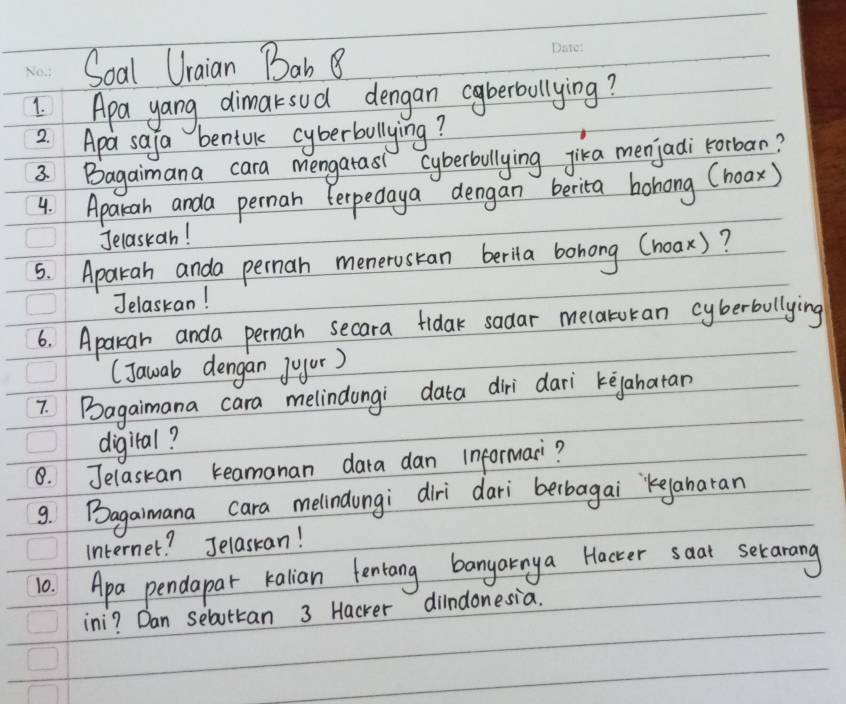 No.:
Date:
Soal Uraian Bab 8
1. Apa yang dimaksud dengan cyberbullying?
2. Apa saja bentuk cyberbullying?
3. Bagaimana cara mengatasi cyberbullying jika menjadi korban?
4. Apakah anda pernah terpedaya dengan berita bohong (hoax)
Jelaskah!
5. Apakah anda pernah meneruskan berita bohong (hoax)?
Jelaskan!
6. Apakah anda pernah secara tidak sadar melakukan cyberbullying
(Jawab dengan jujur)
7. Bagaimana cara melindungi data diri dari kejahatan
digital?
8. Jelaskan keamanan data dan informasi?
9. Bagaimana cara melindungi diri dari berbagai kejahatan
internet? Jelaskan!
10. Apa pendapat kalian tentang banyaknya Hacker saat sekarang
ini? Dan sebutkan 3 Hacker diIndonesia.